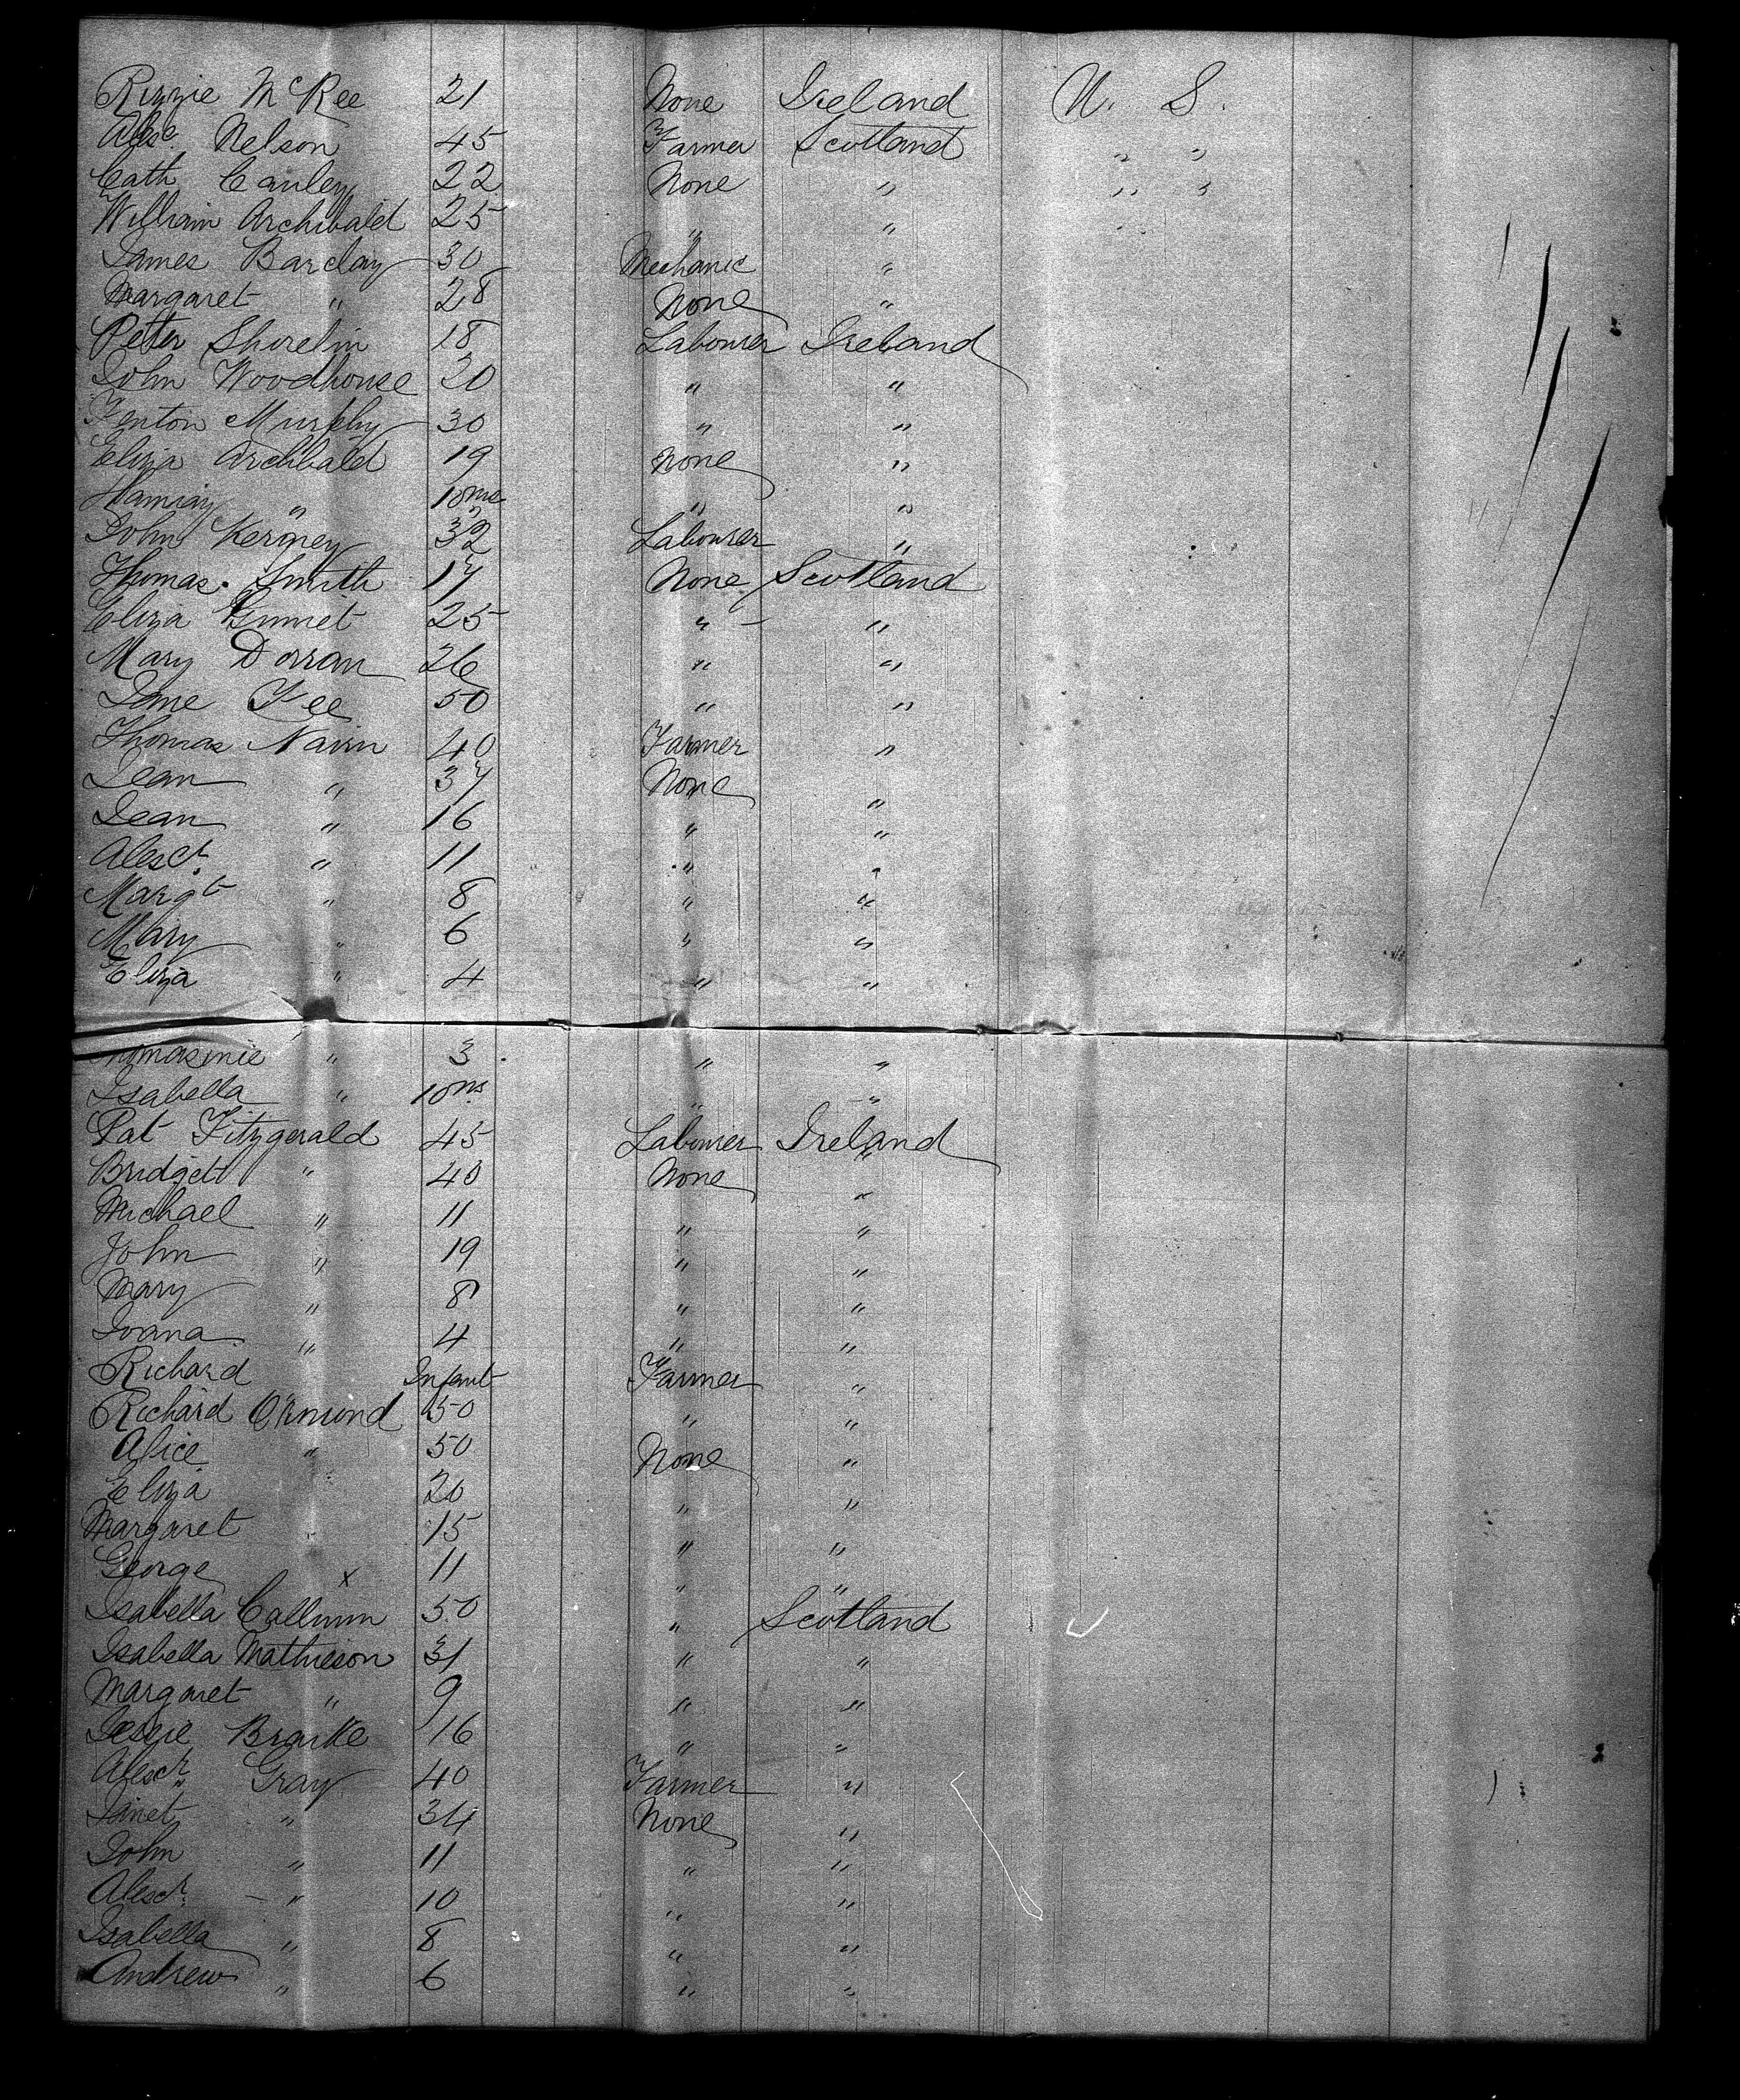 Rizzie McKee 21 None Ireland U. S.
Alexr. Nelson 45 Farmer Scotland " "
Cath Canley 22 None " " "
William Archibald 25 " "
James Barclay 30 Mechanic "
Margaret " 28 None "
Peter Shirelin 18 Labourer Ireland
John Woodhouse 20 " "
Fenton Murphy 30 " "
Eliza Archbald 19 None "
" 10ms " "
John Kerney 32 Labourer "
Thomas Smith 17 None Scotland
Eliza 25 " "
Mary Dorran 26 " "
Jane Fee 50 " "
Thomas Nairn 40 Farmer "
Jean " 37 None "
Jean " 16 " "
Alexr. " 11 " "
Margt " 8 " "
Mary " 6 " "
Eliza " 4 " "
Thomasinie " 3 " "
Isabella " 10ms " "
Pat Fitzgerald 45 Labourer Ireland
Bridget " 40 None "
Michael " 11 " "
John " 19 " "
Mary " 8 " "
Joana " 4 " "
Richard Infant " "
Richard Ormond 50 Farmer "
Alice " 50 None "
Eliza 20 " "
Margaret " 15 " "
George 11 " "
Isabella Callumn x 50 " Scotland
Isabella Mathieson 31 " "
Margaret " 9 " "
Jessie 16 " "
Alexr. Gray 40 Farmer "
Jinet " 34 None "
John " 11 " "
Alexr. " 10 " "
Isabella " 8 " "
Andrew " 6 " "